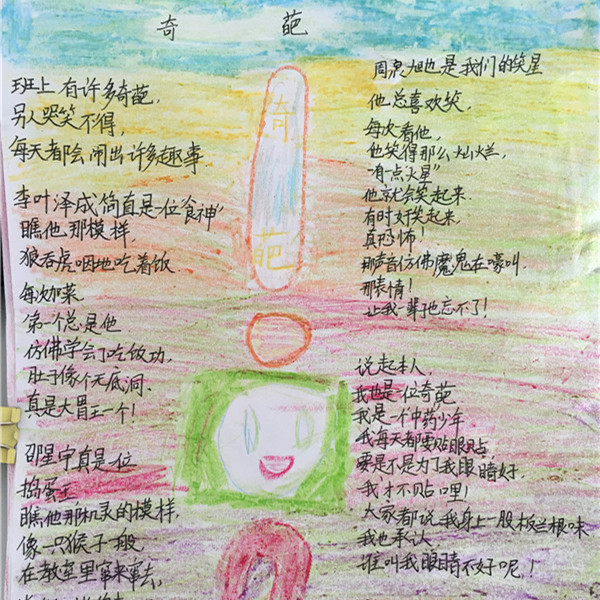 奇 葩
班上有许多奇葩,
别人哭笑不得,
每天都会闹出许多趣事
李叶泽成简直是一位食神"
瞧他那模样,
狼吞虎咽地吃着饭
每次加菜
第一个总是他
仿佛学会了吃饭功,
肚子像个无底洞,
真是大胃王一个!
邵星宇真是一位
捣蛋王
瞧他那机灵的模样,
像一只猴子一般
在教室里窜来窜去,
奇
葩
周泉旭也是我们的笑星
他总喜欢笑,
每次看他,
他笑得那么灿烂,
"有一点火星"
他就会笑起来.
有时奸笑起来,
真恐怖!
那声音仿佛魔鬼在嚎叫.
那表情!
让我一辈子也忘不了!
说起本人,
我也是一位奇葩
我是一个中药少年.
我每天都要贴眼贴,
要是不是为了我眼睛好,
我才不贴哩!
大家都说我身上一股板兰根味
我也承认
谁叫我眼睛不好呢!